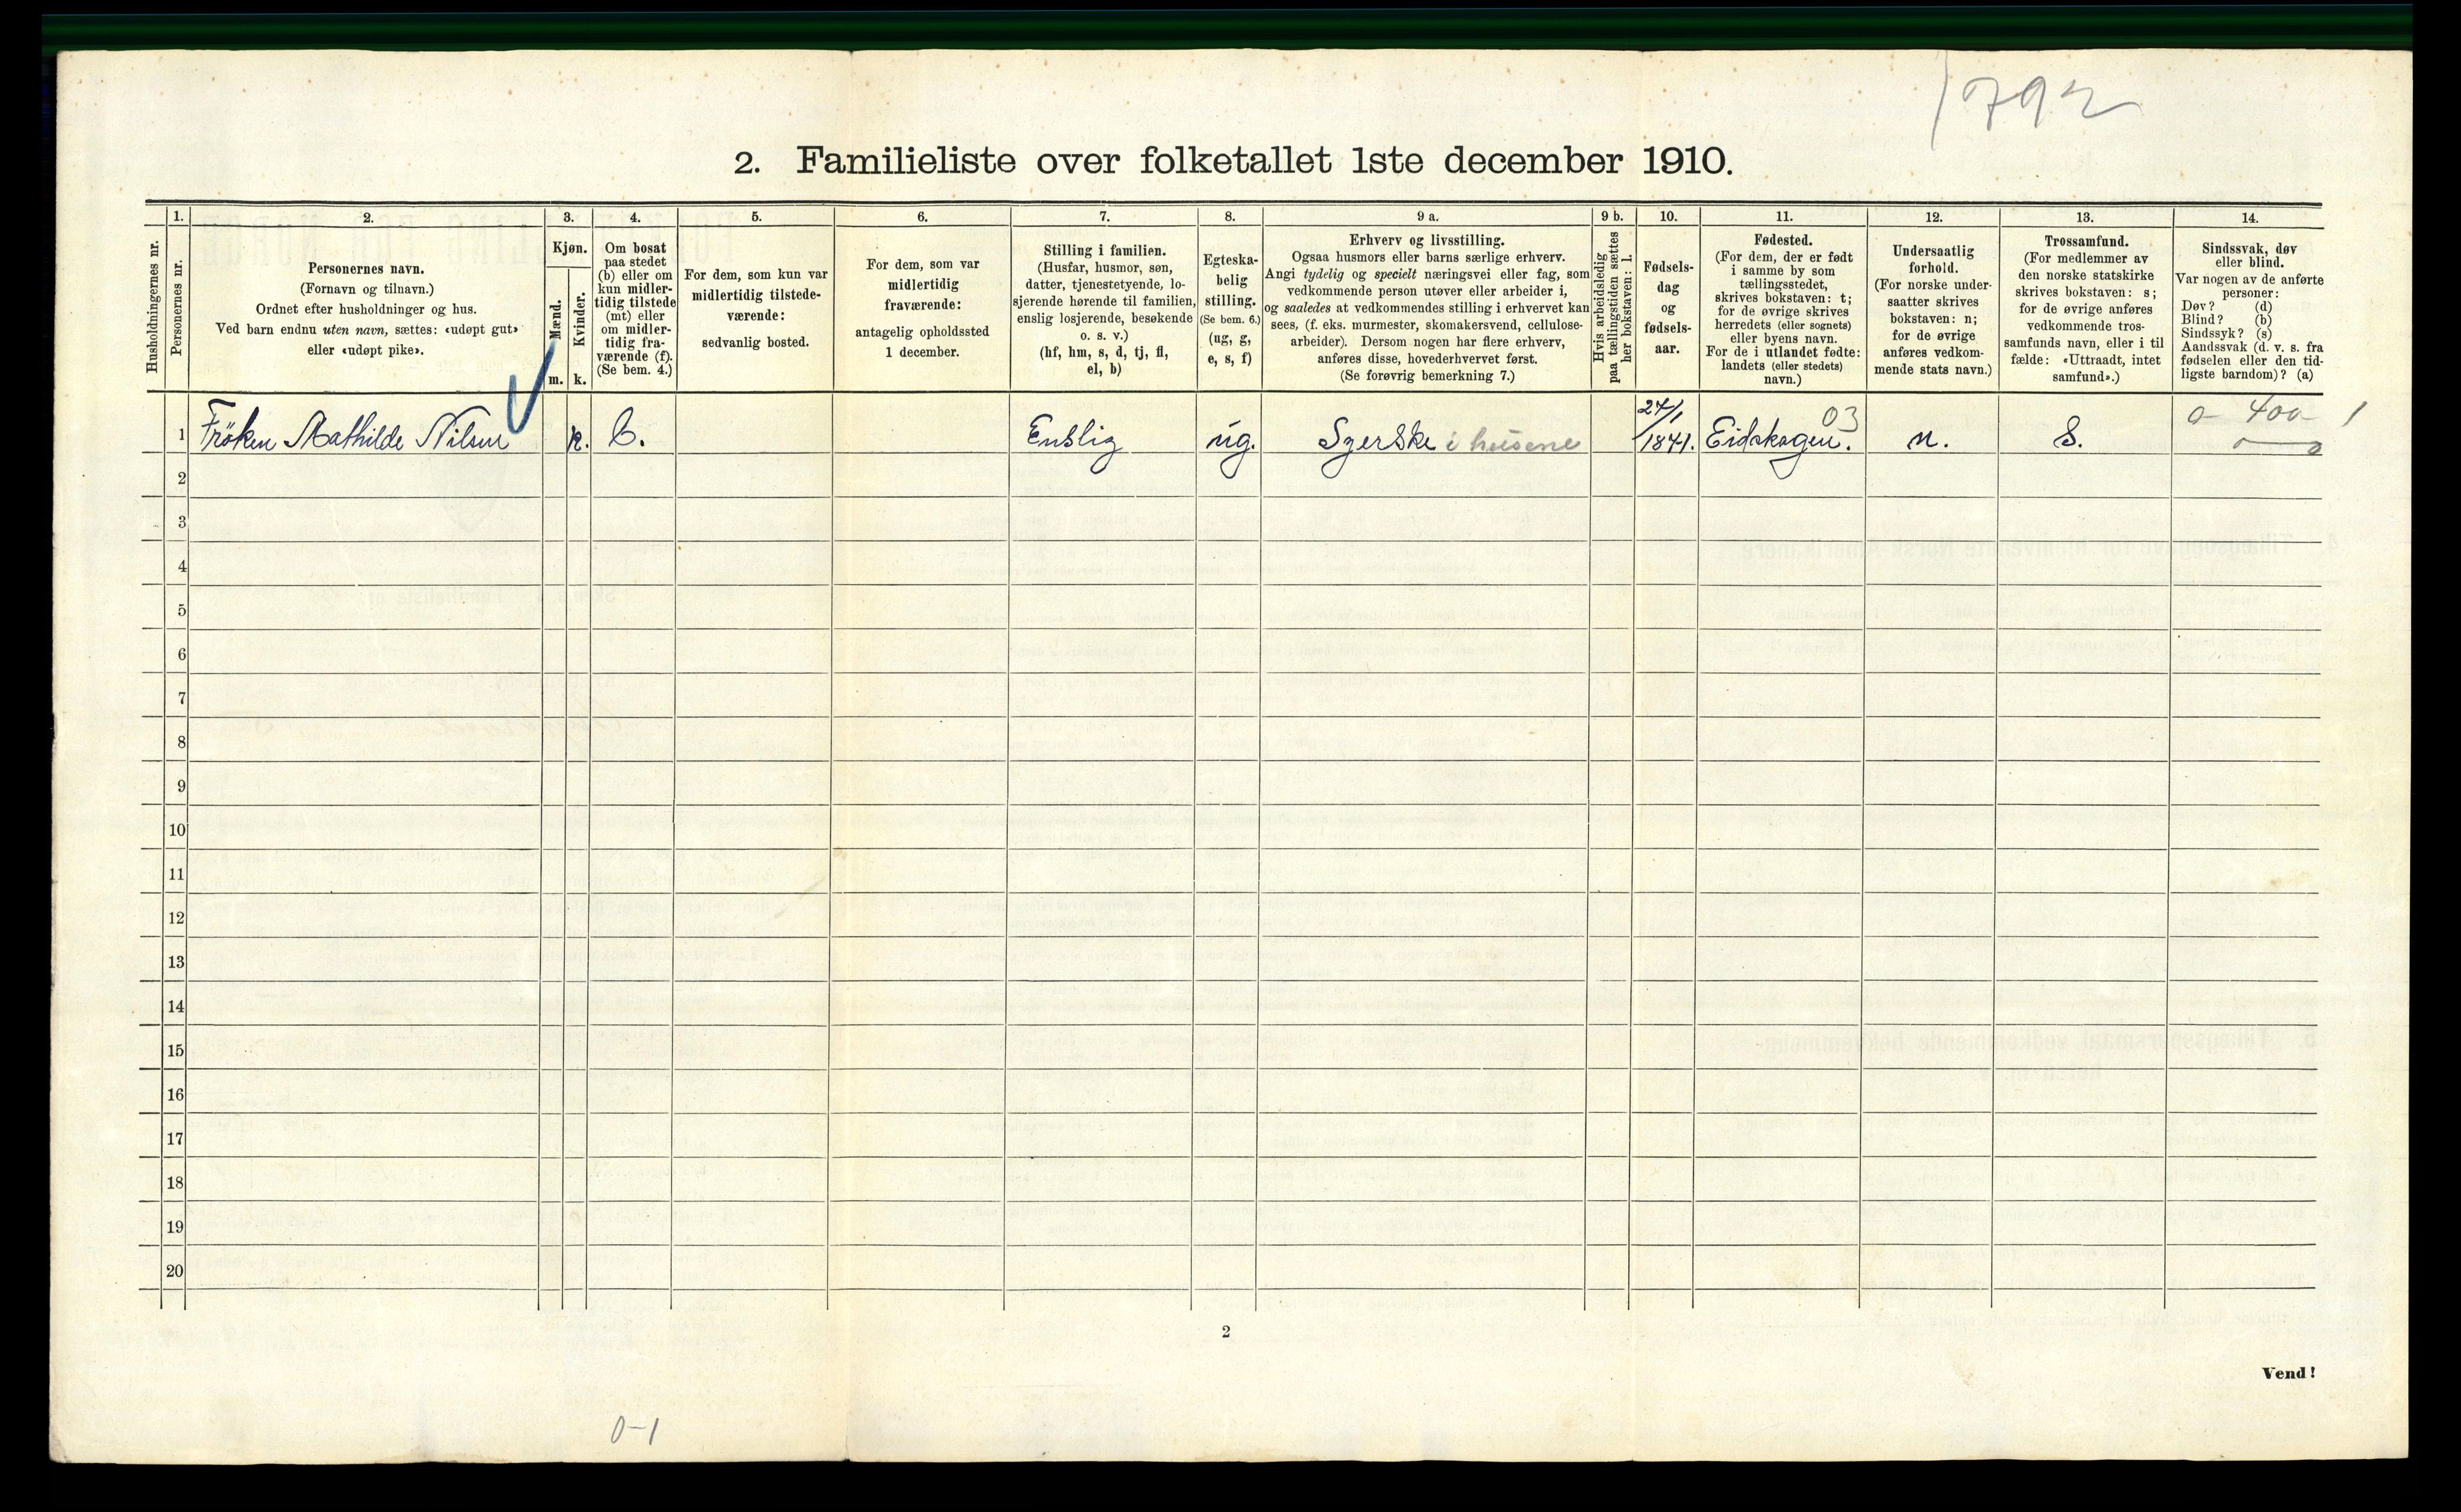 1792
2. Familieliste over folketallet 1ste december 1910.
1. 2. 3. 4. 5. 6. 7. 8. 9 a. 9 b. 10. 11. 12. 13. 14.
Husholdningernes nr.
Personernes nr.
Personernes navn.
(Fornavn og tilnavn.)
Ordnet efter husholdninger og hus.
Ved barn endnu uten navn, sættes: «udøpt gut»
eller «udøpt pike».
Kjøn.
Mænd.
m.
Kvinder.
k.
Om bosat
paa stedet
(b) eller om
kun midler-
tidig tilstede
(mt) eller
om midler-
tidig fra-
værende (f).
(Se bem. 4.)
For dem, som kun var
midlertidig tilstede-
værende:
sedvanlig bosted.
For dem, som var
midlertidig
fraværende:
antagelig opholdssted
1 december.
Stilling i familien.
(Husfar, husmor, søn,
datter, tjenestetyende, lo-
sjerende hørende til familien,
enslig losjerende, besøkende
o. s. v.)
(hf, hm, s, d, tj, fl,
el, b)
Egteska-
belig
stilling.
(Se bem. 6.)
(ug, g,
e, s, f)
Erhverv og livsstilling.
Ogsaa husmors eller barns særlige erhverv.
Angi tydelig og specielt næringsvei eller fag, som
vedkommende person utøver eller arbeider i,
og saaledes at vedkommendes stilling i erhvervet kan
sees, (f. eks. murmester, skomakersvend, cellulose-
arbeider). Dersom nogen har flere erhverv,
anføres disse, hovederhvervet først.
(Se forøvrig bemerkning 7.)
Hvis arbeidsledig
paa tællingstiden sættes
her bokstaven: l.
Fødsels-
dag
og
fødsels-
aar.
Fødested.
(For dem, der er født
i samme by som
tællingsstedet,
skrives bokstaven: t;
for de øvrige skrives
herredets (eller sognets)
eller byens navn.
For de i utlandet fødte:
landets (eller stedets)
navn.)
Undersaatlig
forhold.
(For norske under-
saatter skrives
bokstaven: n;
for de øvrige
anføres vedkom-
mende stats navn.)
Trossamfund.
(For medlemmer av
den norske statskirke
skrives bokstaven: s;
for de øvrige anføres
vedkommende tros-
samfunds navn, eller i til
fælde: «Uttraadt, intet
samfund».)
Sindssvak, døv
eller blind.
Var nogen av de anførte
personer:
Døv? (d)
Blind? (b)
Sindssyk? (s)
Aandssvak (d. v. s. fra
fødselen eller den tid-
ligste barndom)? (a)
03
0 400 1
1 Fröken Mathilde Nilsen k. b. Enslig ug. Syerske i husene 24/1 1841. Eidskogen. n. S.
2
3
4
5
6
7
8
9
10
11
12
13
14
15
16
17
18
19
20
2
Vend!
0-1